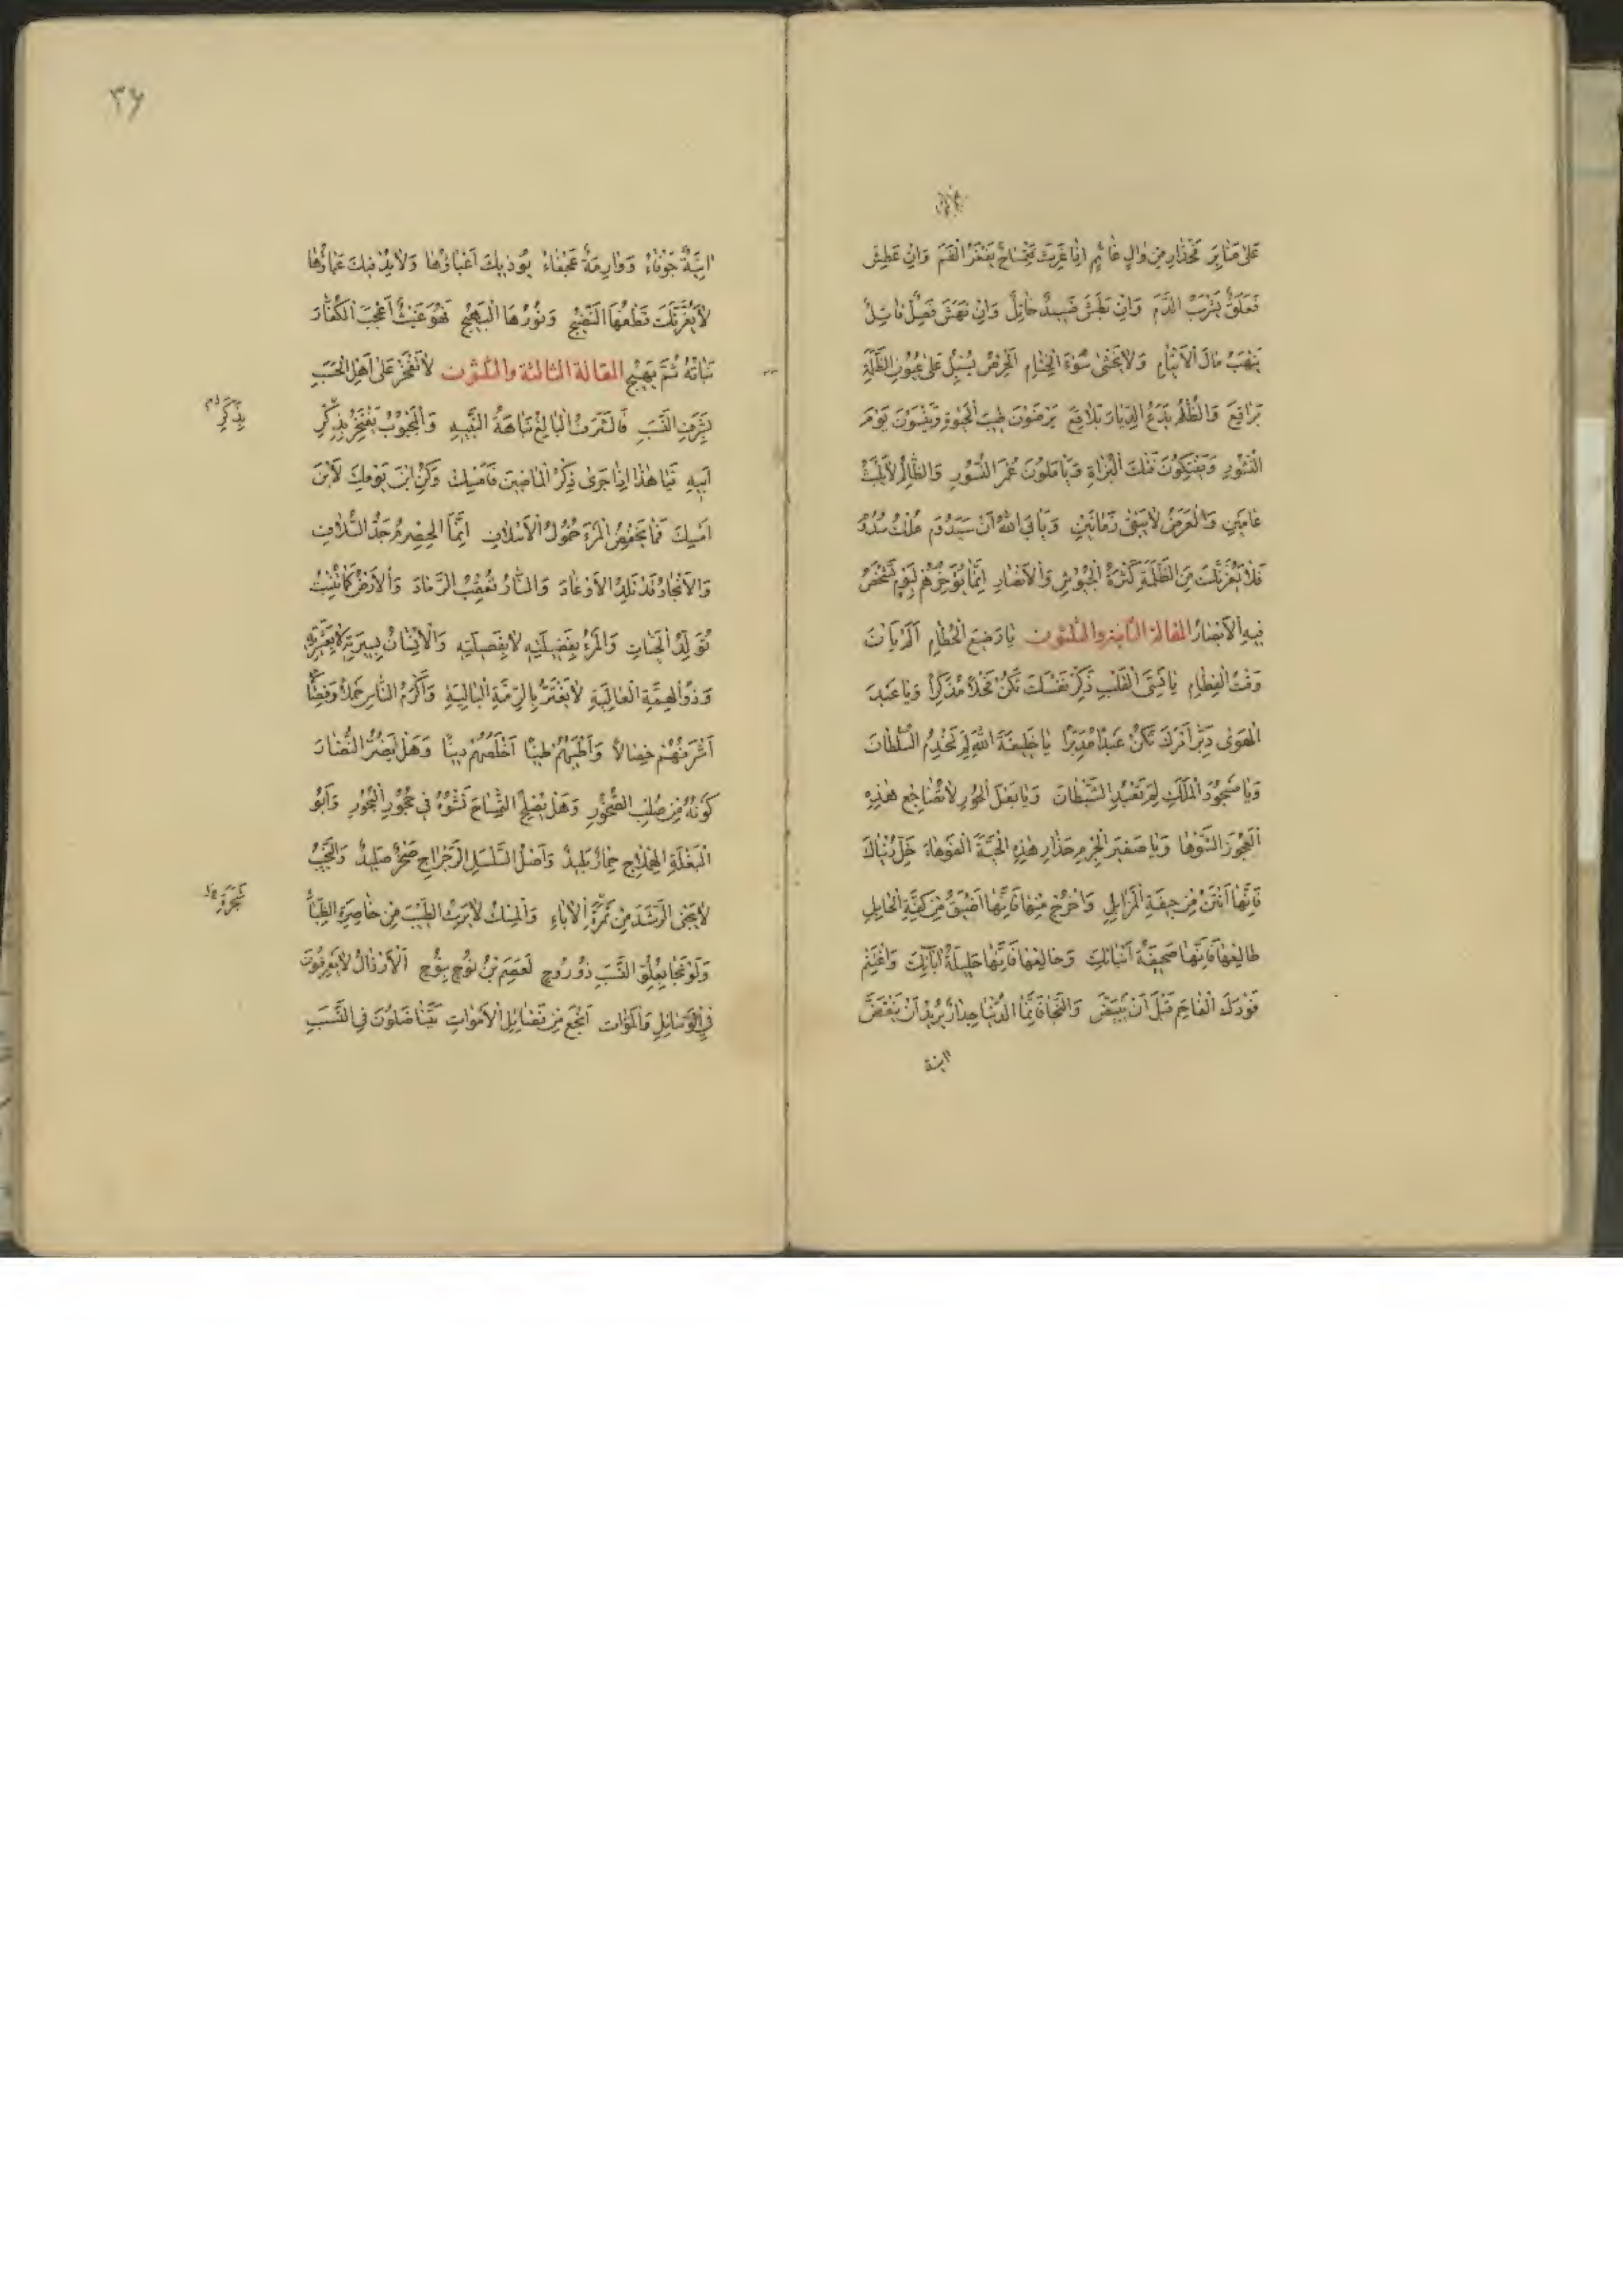 عَلى صَابِرَ تَحْذَارِ مِن وَالٍ غَاشِمٍ اِنْ غَرِثَ فَتِمْسَاحٌ يَفْغَرُ الْفَمَ وَاِنْ عَطِشَ
فَعَلَقٌ يَشْرَبُ الدَّمَ وَاِنْ بَطَشَ فَصِيدٌ خَاتِلٌ وَاِنْ نَهَشَ فَصِلٌّ قَاتِلٌ
يَنْهَبُ مَالَ الْاَيْتَامِ وَلَا يَخْشٰى سُوْءَ الْخِتَامِ الْحِرْصُ يُسْبِلُ عَلٰى عُيُوْنِ الظَّلَمَةِ
بَرَاقِعَ وَالظُّلْمُ يَدَعُ الدِّيَارَ بَلَاقِعَ يَرْضَوْنَ طِيْبَ الْحَيٰوةِ وَيَنْسَوْنَ يَوْمَ
النُّشُوْرِ وَيَفْتِكُوْنَ فَتْكَ الْبُزَاةِ وَيَأْمُلُوْنَ عُمْرَ النُّسُوْرِ وَالظَّالِمُ لَا يَلْبَثُ
عَامَيْنِ وَالْعَرَضُ لَا يَبْقٰى زَمَانَيْنِ وَيَأْبَى اللّٰهُ اَنْ سَيَدُوْمَ مُلْكُ سَدُوْمَ
فَلَا يَغُرَّنَّكَ مِنَ الظَّلَمَةِ كَثْرَةُ الْجُيُوْشِ وَالْاَنْصَارِ اِنَّمَا يُؤَخِّرُهُمْ لِيَوْمٍ تَشْخَصُ
فِيْهِ الْاَبْصَارُ المقالة الثانية والثلثون يَا رَضِيْعَ الْحُطَامِ اَلَمْ يَاْنِ
وَقْتُ الْفِطَامِ يَا نَسِيَّ الْقَلْبِ ذَكِّرْ نَفْسَكَ تَكُنْ فَحْلًا مُذَكَّرًا وَيَا عَبْدَ
الْهَوٰى دَبِّرْ اَمْرَكَ تَكُنْ عَبْدًا مُدَبَّرًا يَا خَلِيْفَةَ اللّٰهِ لِمَ تَخْدِمُ السُّلْطَانَ
وَيَا مَسْجُوْدَ الْمَلَكِ لِمَ تَعْبُدُ الشَّيْطَانَ وَيَا بَعْلَ الْحُوْرِ لَا تُضَاجِعْ هٰذِهِ
الْعَجُوْزَ الشَّوْهَا وَيَا صَغِيْرَ الْجِرْمِ حَذَارِ هٰذِهِ الْحَيَّةَ الْفَوْهَاءَ خَلِّ دُنْيَاكَ
فَاِنَّهَا اَنْتَنُ مِنْ جِيْفَةِ الْمَزَابِلِ وَاخْرُجْ مِنْهَا فَاِنَّهَا اَضْيَقُ مِنْ كِفَّةِ الْحَابِلِ
طَالِعْهَا فَاِنَّهَا صَحِيْفَةُ اَنْبَائِكَ وَخَالِعْهَا فَاِنَّهَا حَلِيْلَةُ اٰبَائِكَ وَاغْتَنِمْ
فَوْدَكَ الْفَاحِمَ قَبْلَ اَنْ يَبْيَضَّ وَالنَّجَا فَاِنَّمَا الدُّنْيَا جِدَارٌ يُرِيْدُ اَنْ يَنْقَضَّ
ابنة
٣٦
ابْنَةٌ جَوْنَاءُ وَوَارِمَةٌ عَجْفَاءُ يُؤْذِيْكَ اَعْبَاؤُهَا وَلَا يُدْفِئُكَ عَبَاؤُهَا
لَا يَغُرَّنَّكَ قَطْفُهَا النَّضِيْجُ وَنَوْرُهَا الْبَهِيْجُ فَهُوَ غَيْثٌ اَعْجَبَ الْكُفَّارَ
نَبَاتُهُ ثُمَّ يَهِيْجُ المقالة الثالثة والثلثون لَا تَفْخَرْ عَلٰى اَهْلِ الْحَسَبِ
بِشَرَفِ النَّسَبِ فَالشَّرَفُ الْبَالِغُ نَبَاهَةُ النَّبِيْهِ وَالْمَحْجُوْبُ يَفْتَخِرُ بِذِكْرِ
اَبِيْهِ فَيَا هٰذَا اِذَا جَرٰى ذِكْرُ الْمَاضِيْنَ فَاَمْسِكْ وَكُنْ ابْنَ يَوْمِكَ لَا ابْنَ
اَمْسِكَ فَمَا يَخْفِضُ الْمَرْءَ خُمُوْلُ الْاَسْلَافِ اِنَّمَا الْحِصْرِمُ جَدُّ السُّلَافِ
وَالْاَنْجَادُ قَدْ تَلِدُ الْاَوْغَادَ وَالنَّارُ تُعْقِبُ الرَّمَادَ وَالْاَرْضُ كَمَا تُنْبِتُ
تُوَلِّدُ الْحَيَّاتِ وَالْمَرْءُ بِفَضِيْلَتِهِ لَا بِفَصِيْلَتِهِ وَالْاِنْسَانُ بِسِيْرَتِهِ لَا بِعَشِيْرَتِهِ
وَذُو الْهِمَّةِ الْعَالِيَةِ لَا يَغْتَرُّ بِالرِّمَّةِ الْبَالِيَةِ وَاَكْرَمُ النَّاسِ
اَشْرَفُهُمْ خِصَالًا وَاَطْيَبُهُمْ طِيْنًا اَخْلَصُهُمْ دِيْنًا وَهَلْ يَضُرُّ النُّضَارَ
كَوْنُهُ مِنْ صُلْبِ الصُّخُوْرِ وَهَلْ يُصْلِحُ التِّمْسَاحَ نُشُوْؤُهُ فِيْ حُجُوْرِ الْبُحُوْرِ وَاَبُو
الْبَغْلَةِ الْهِمْلَاجِ حِمَارٌ بَلِيْدٌ وَاَصْلُ السَّلْسَلِ الرَّجْرَاجِ صَخْرٌ صَلِيْدٌ وَالنَّجِيْبُ
لَا يَجْنِى الرَّشَدَ مِنْ ثَمَرَةِ الْاٰبَاءِ وَالْمِسْكُ لَا يَرِثُ الطِّيْبَ مِنْ خَاصِرَةِ الظِّبَا
وَلَوْ نَجَا بِعُلُوِّ النَّسَبِ ذُوْ رُوْحٍ لَعُصِمَ ابْنُ نُوْحٍ بِنُوْحٍ الْاَرْذَالُ لَا يَعْرِفُوْنَ
اَنْجَعَ مِنْ فَضَائِلِ الْاَمْوَاتِ يَتَنَاضَلُوْنَ فِي النَّسَبِ
بِذِكْرِ
شَجَرَةِ